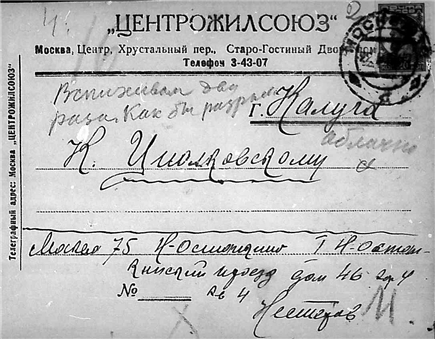 „ЦЕНТРОЖИЛСОЮЗ"
Москва, Центр, Хрустальный пер., Старо-Гостиный Двор
Телефон 3-43-07
МОСКВА
Вспыхивал два
раза. Как бы разрыв
облачка
г. Калуга
К. Циолковскому
Телеграфный адрес: Москва „ЦЕНТРОЖИЛСОЮЗ"
Москва 75 Н-Останкино 1 Н-Остан-
кинский проезд дом 46
№ кв 4
Нестеров